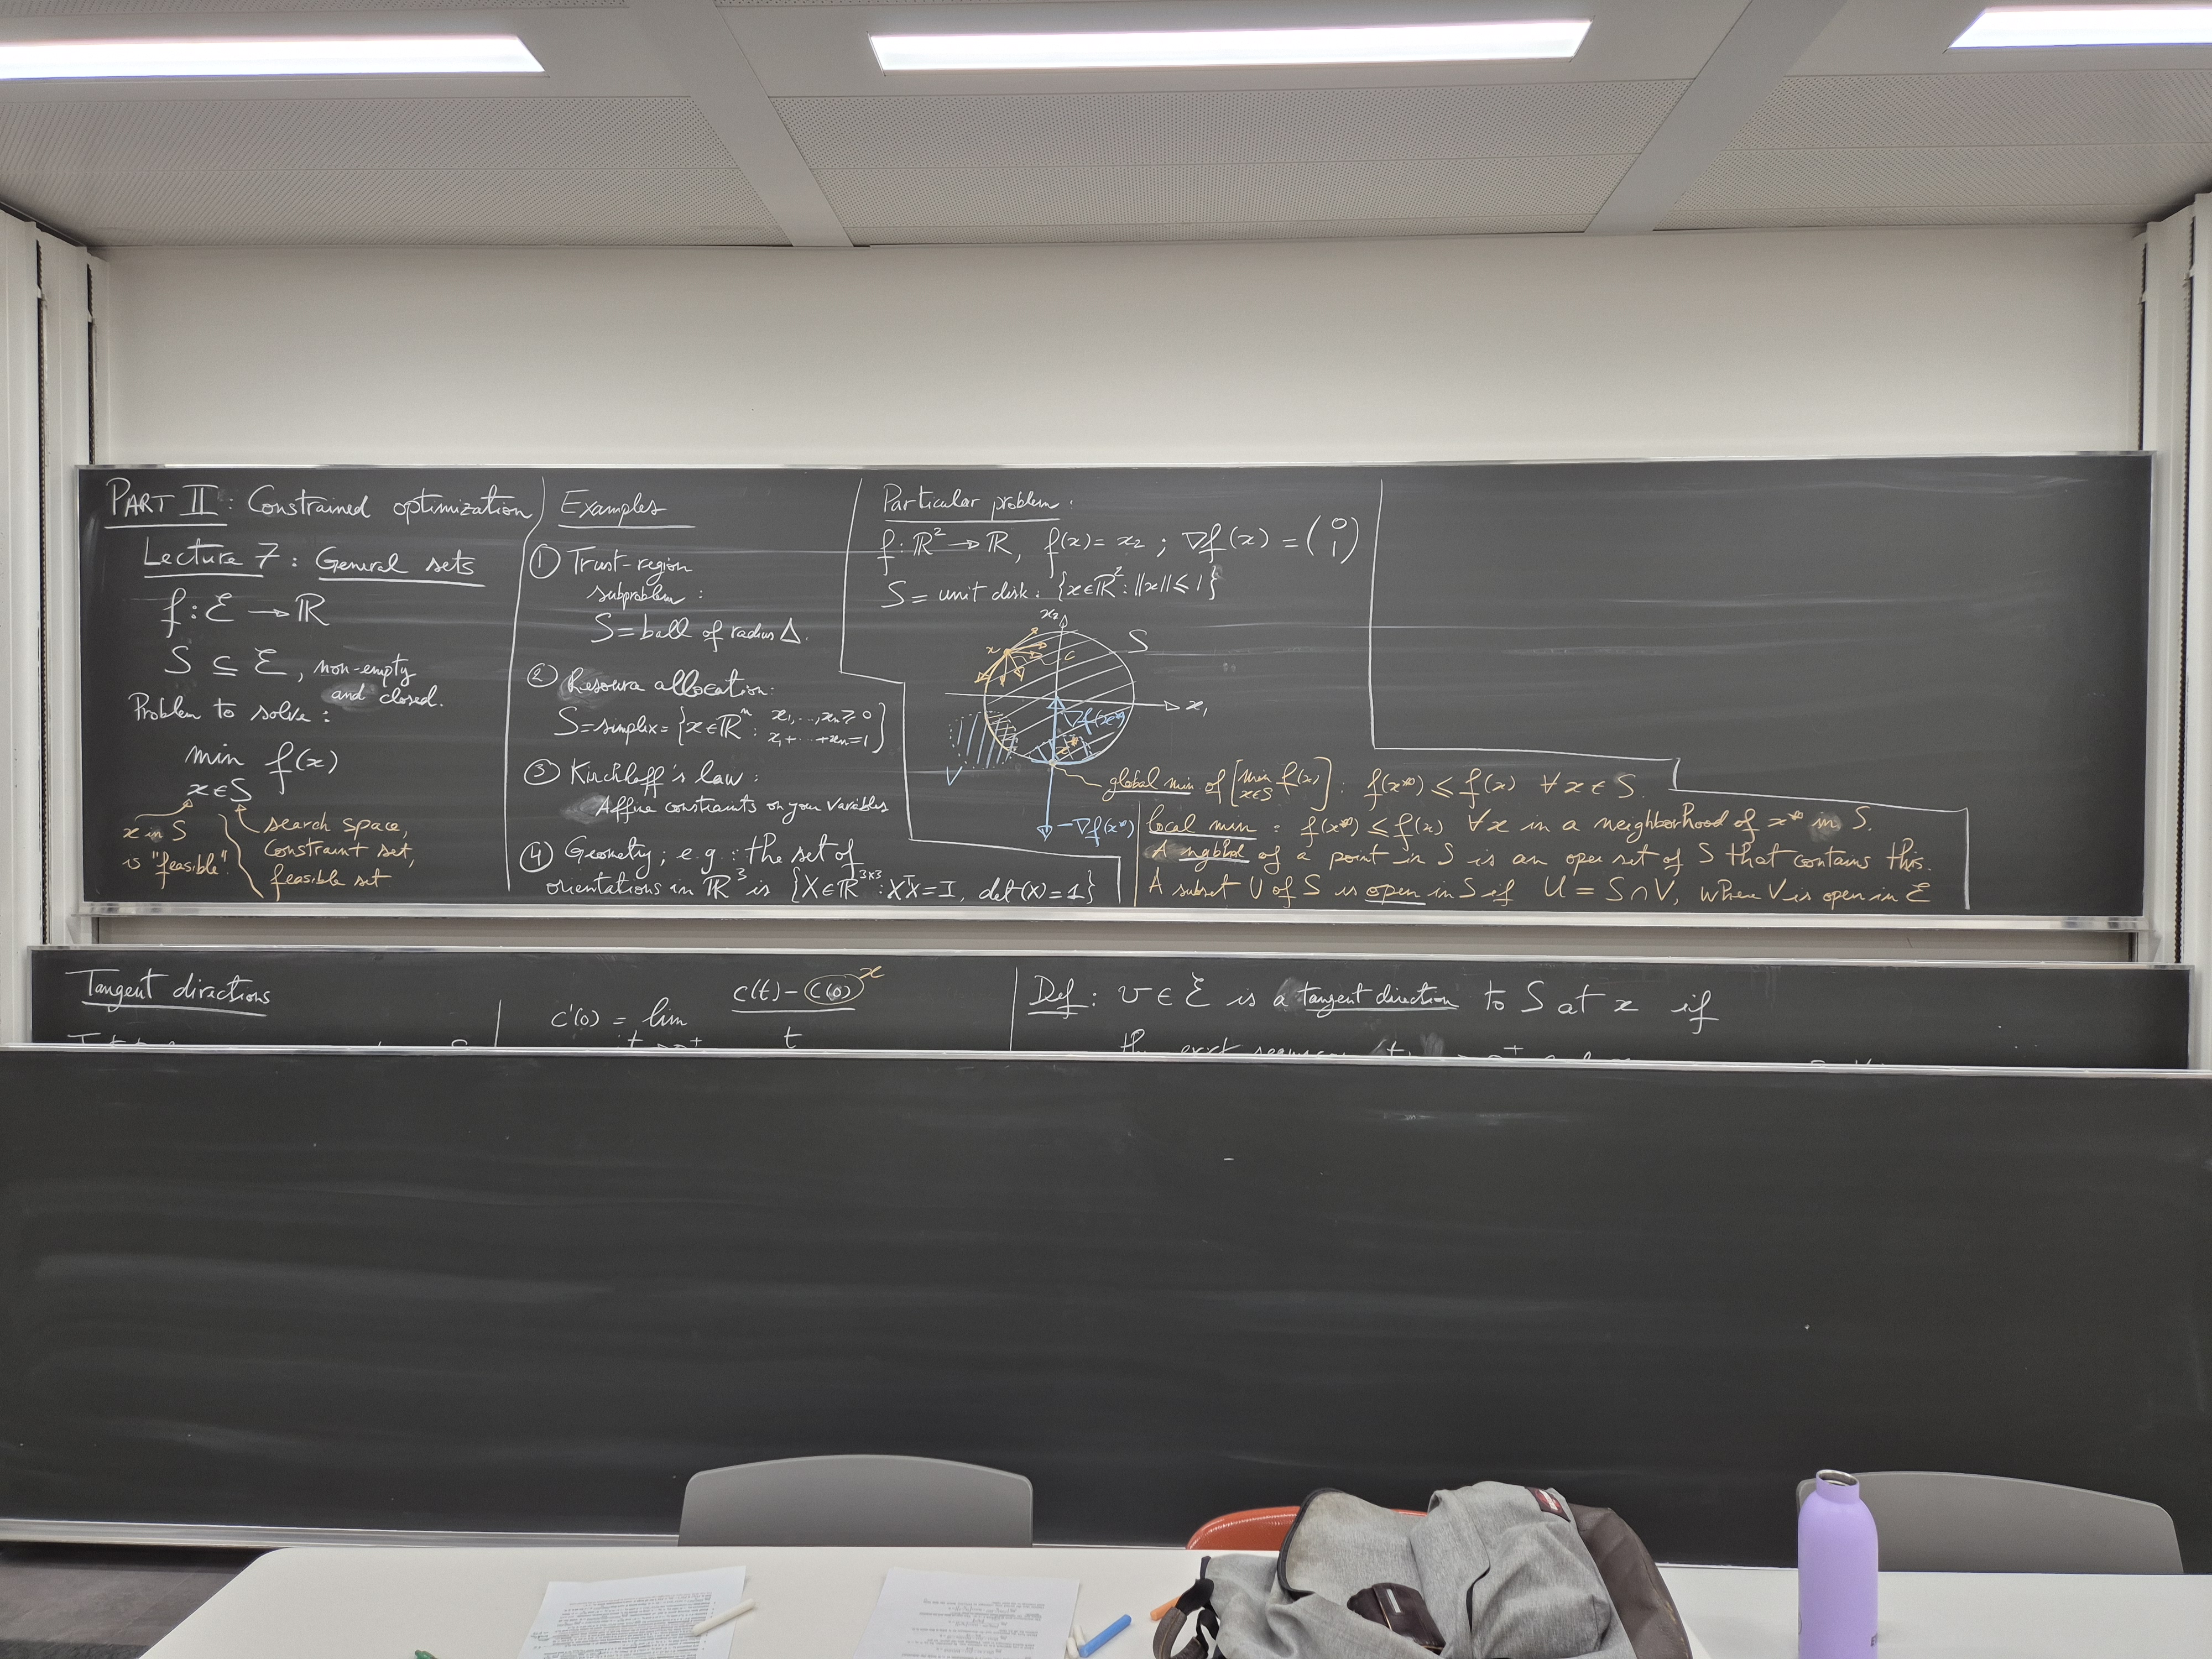 PART II : Constrained optimization
Lecture 7 : General sets
f : ℰ → ℝ
S ⊆ ℰ, non-empty
and closed.
Problem to solve :
min f(x)
x ∈ S
x in S
is "feasible".
search space,
constraint set,
feasible set
Examples
① Trust-region
subproblem :
S = ball of radius Δ.
② Resource allocation:
S = simplex = {x ∈ ℝⁿ : x₁, ..., xₙ ≥ 0
x₁ + ... + xₙ = 1}
③ Kirchhoff's law :
Affine constraints on your variables
④ Geometry; e.g.: the set of
orientations in ℝ³ is {X ∈ ℝ³ˣ³ : XᵀX = I, det(X) = 1}
Particular problem :
f : ℝ² → ℝ, f(x) = x₂ ; ∇f(x) = (0 1)
S = unit disk : {x ∈ ℝ² : ||x|| ≤ 1}
x₂
S
x
c
x₁
∇f(x*)
x*
V
-∇f(x*)
global min of [min x∈S f(x)] : f(x*) ≤ f(x) ∀x ∈ S.
local min : f(x*) ≤ f(x) ∀x in a neighborhood of x* in S.
A ngbhd of a point in S is an open set of S that contains this.
A subset U of S is open in S if U = S ∩ V, where V is open in ℰ
Tangent directions
c'(0) = lim c(t) - c(0) x
t
Def : v ∈ ℰ is a tangent direction to S at x if